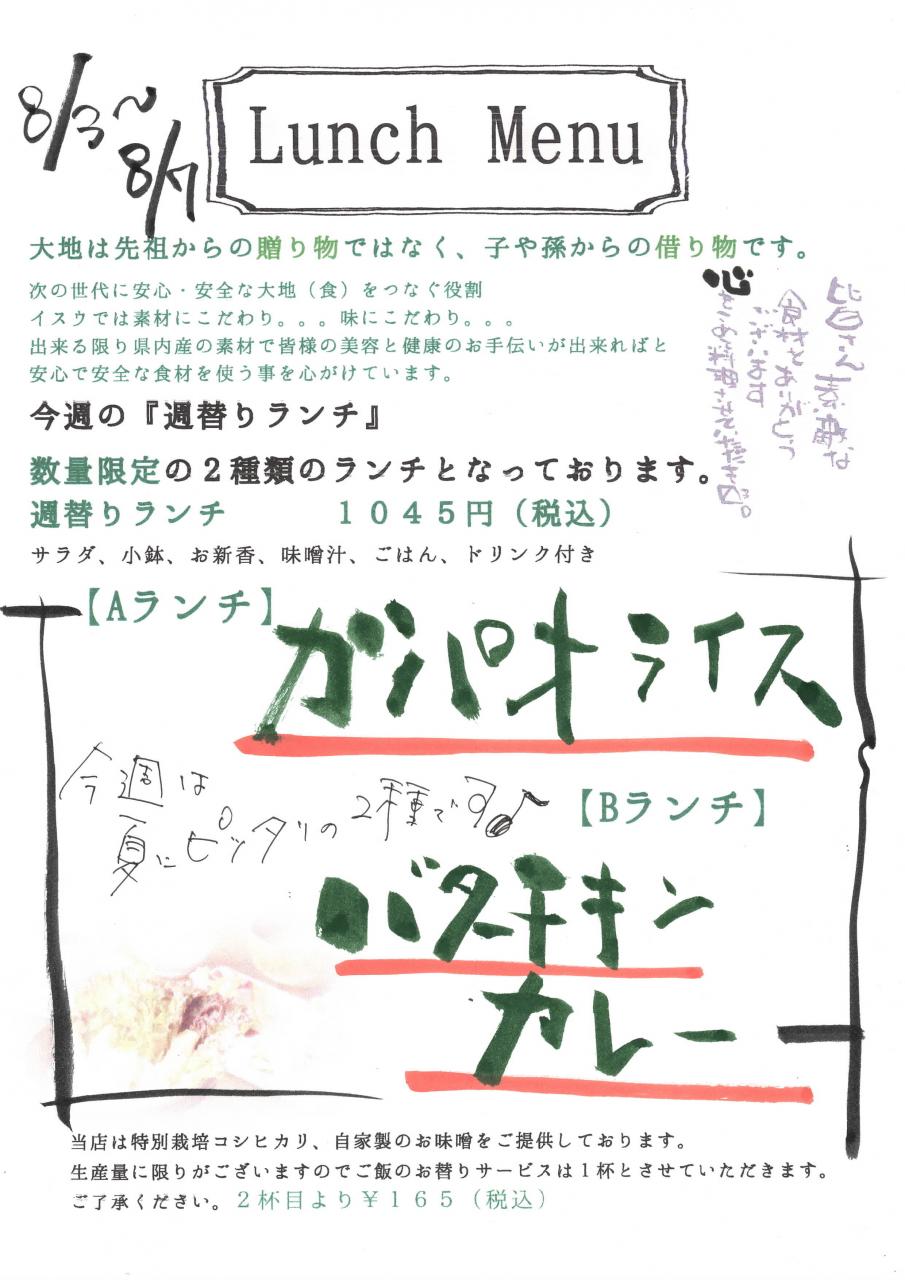 8/3〜
8/7
Lunch Menu
大地は先祖からの贈り物ではなく、子や孫からの借り物です。
次の世代に安心・安全な大地（食）をつなぐ役割
イスウでは素材にこだわり。。。味にこだわり。。。
出来る限り県内産の素材で皆様の美容と健康のお手伝いが出来ればと
安心で安全な食材を使う事を心がけています。
皆さん素敵な
食材をありがとう
ございます
心をこめ料理させていただきます。
今週の『週替りランチ』
数量限定の２種類のランチとなっております。
週替りランチ　　　１０４５円（税込）
サラダ、小鉢、お新香、味噌汁、ごはん、ドリンク付き
【Aランチ】
ガパオライス
今週は
夏にピッタリの2種です♪
【Bランチ】
バターチキン
カレー
当店は特別栽培コシヒカリ、自家製のお味噌をご提供しております。
生産量に限りがございますのでご飯のお替りサービスは１杯とさせていただきます。
ご了承ください。２杯目より￥１６５（税込）